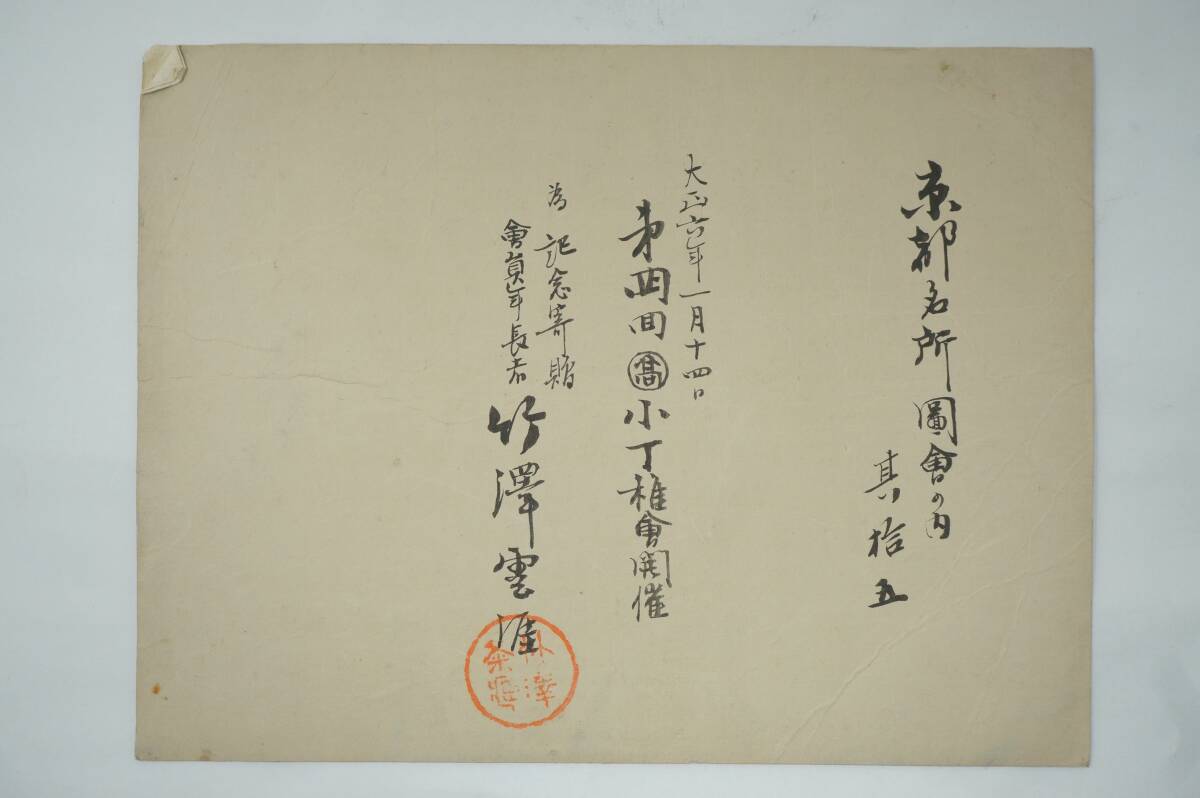 京都名所圖會の内
其拾五
大正六年一月十四日
第四回㊂小丁稚會開催
為記念寄贈
會員年長者
竹澤雲涯
竹澤